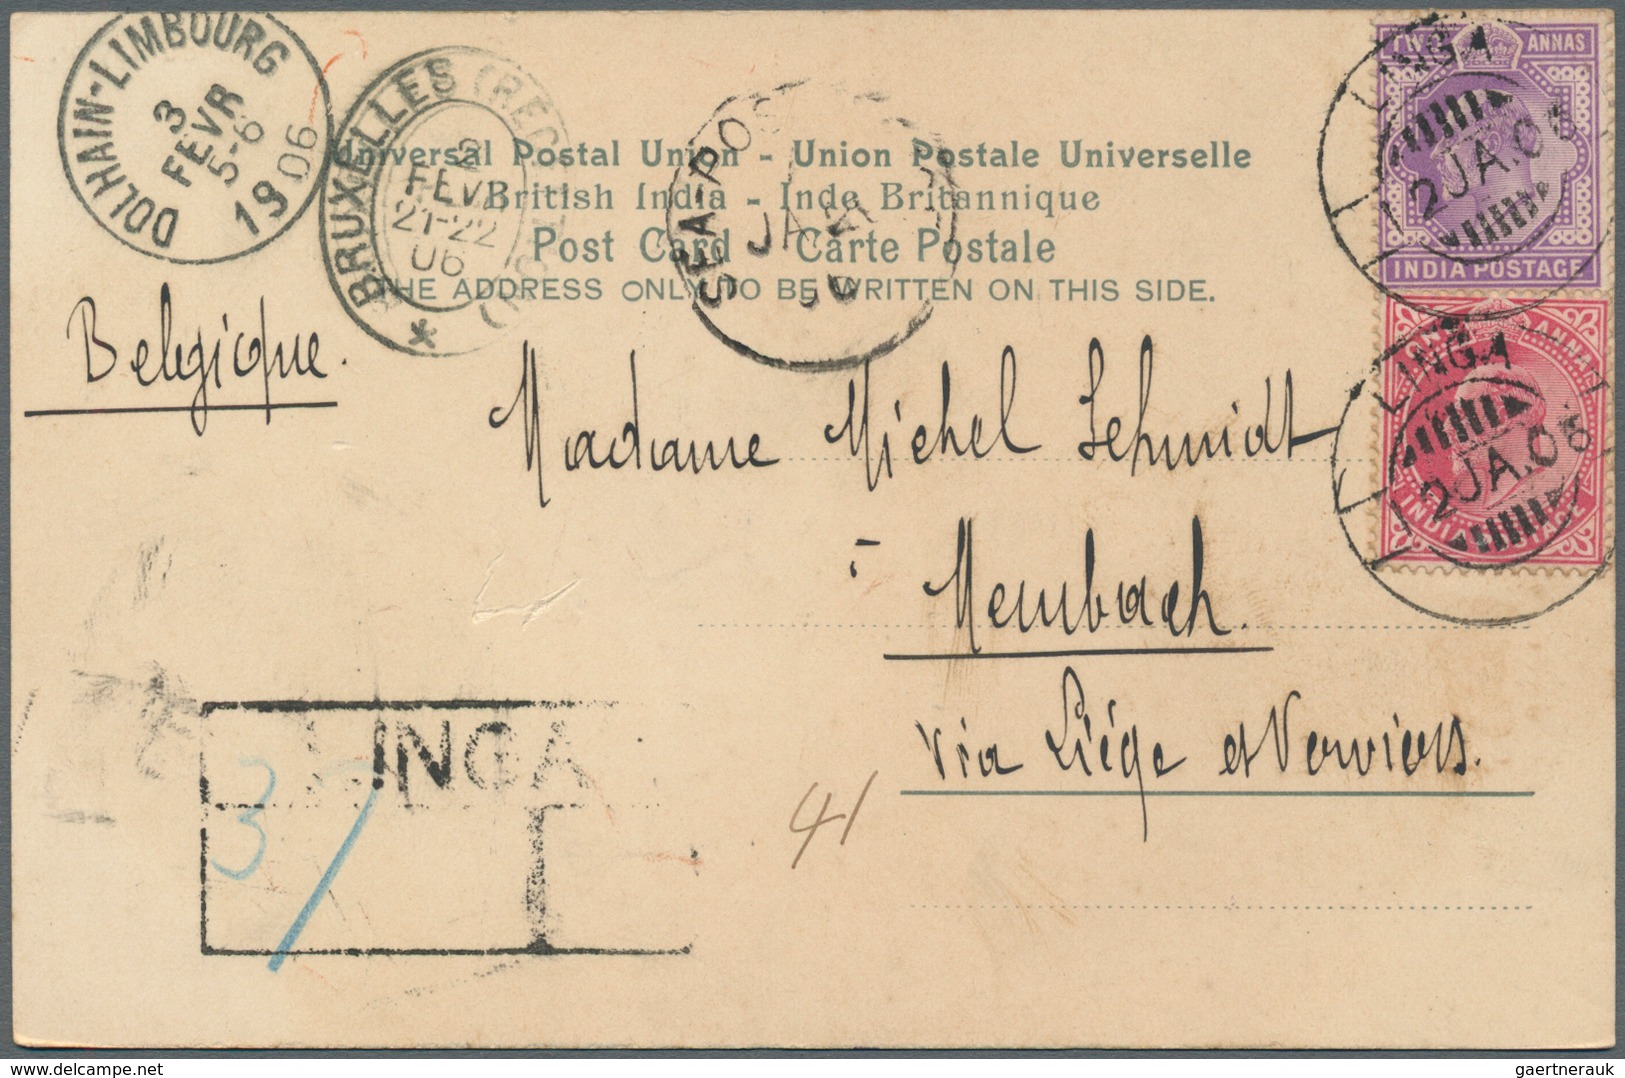 DOLHAIN-LIMBOURG
3
FEVR
5-6
1906
BRUXELLES
2
FEVR
21-22
06
SEA POS
JA
TWO ANNAS
INDIA POSTAGE
LINGA
2 JA.06
Universal Postal Union - Union Postale Universelle
British India - Inde Britannique
Post Card Carte Postale
THE ADDRESS ONLY TO BE WRITTEN ON THIS SIDE.
ONE ANNA
INDIA POSTAGE
LINGA
2 JA.06
Belgique.
Madame Michel Schmidt
à Membach.
via Liége et Verviers.
LINGA
37
41
delcampe.net
gaertnerauk